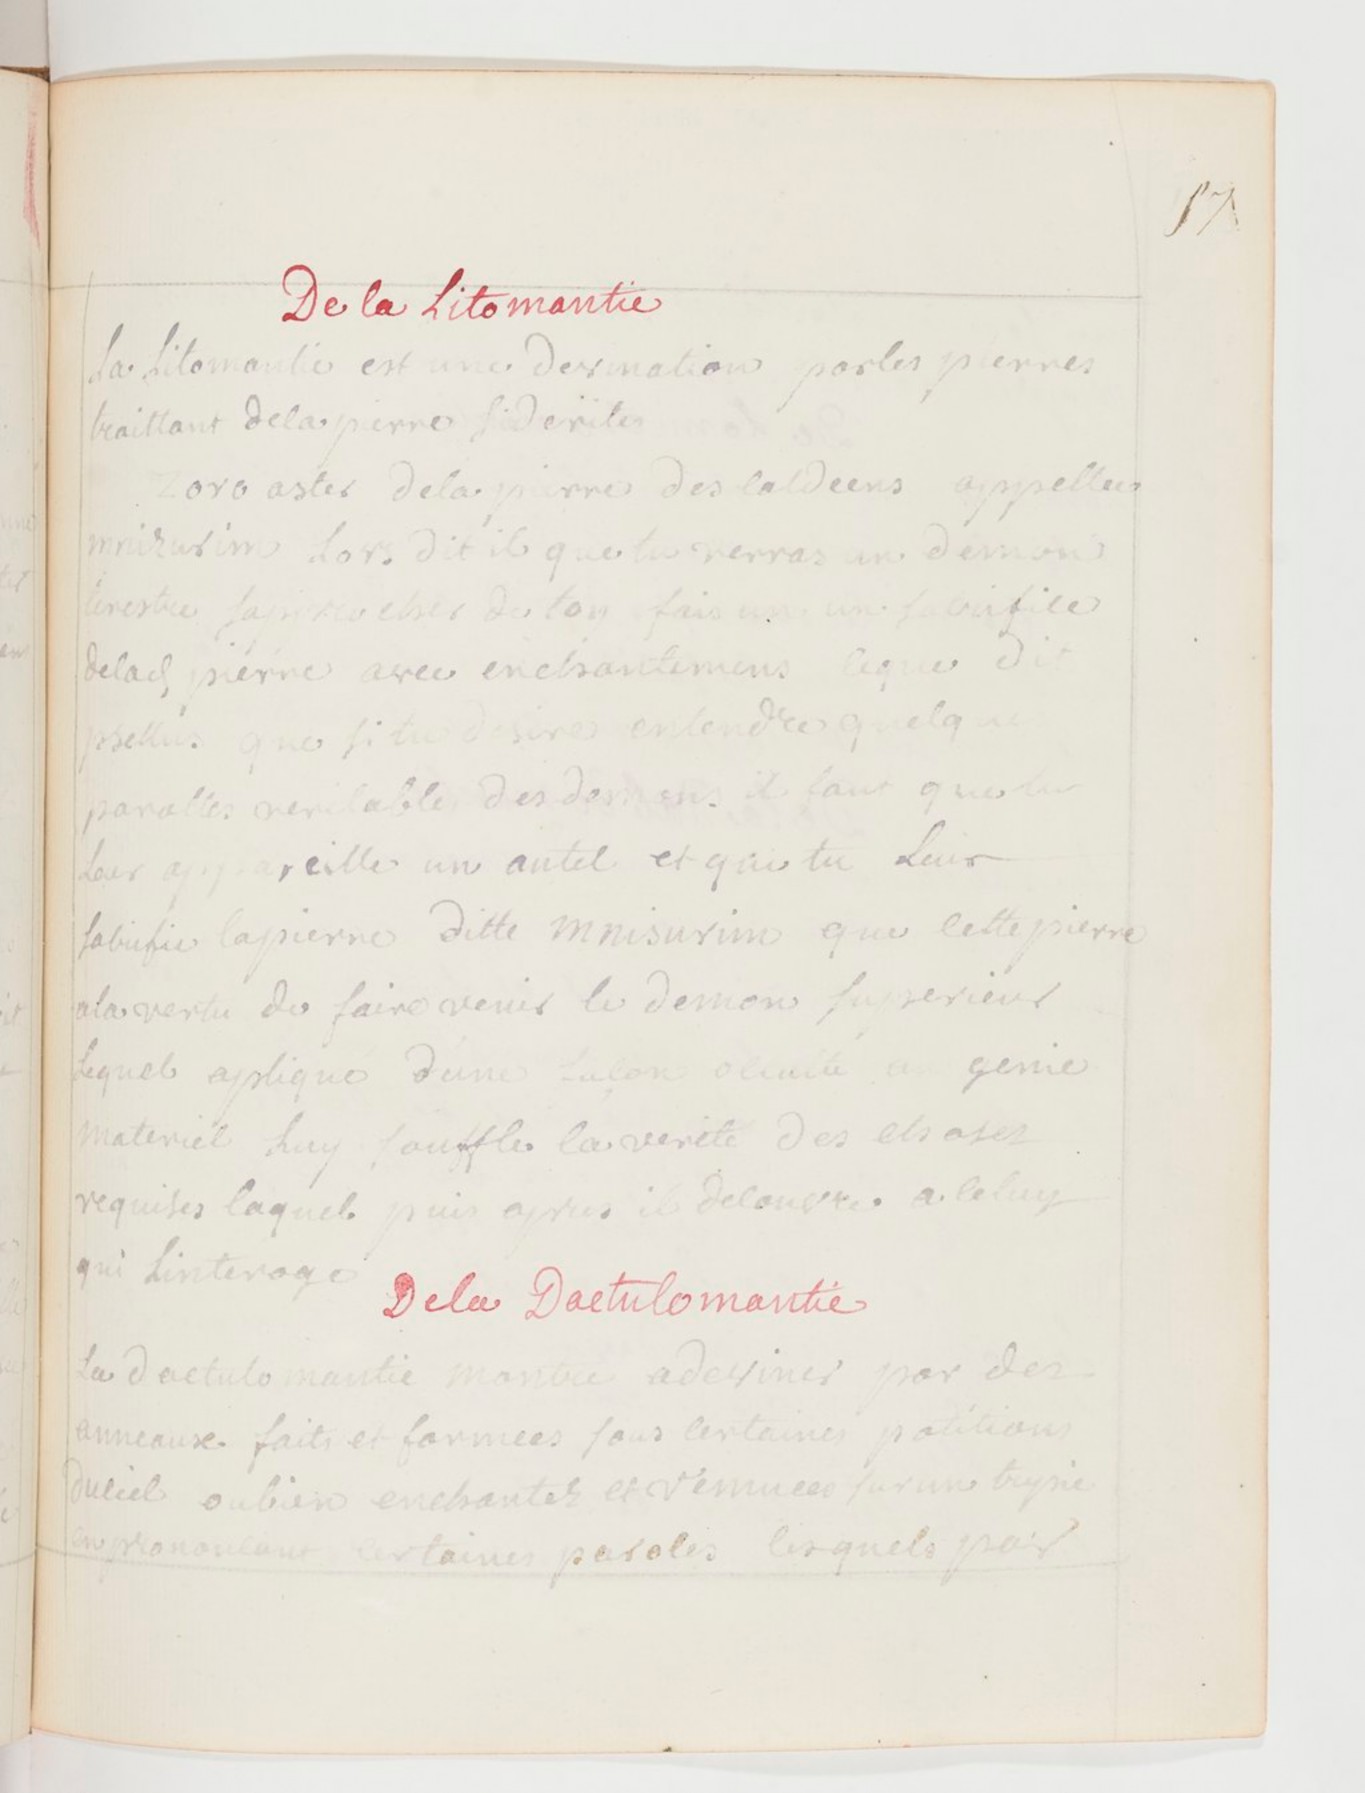 17
De la Litomantie
La Litomantie est une devination par les pierres
traittant de la pierre siderites
Zoroaster de la pierre des caldeens appellee
mnizurim Lors dit il que tu verras un demon
terestre saprocher de toy fais un sacrifice
de lad pierre avec enchantemens ce que dit
psellus que si tu desires entendre quelque
parolles veritable des demons il faut que tu
leur appareille un autel et qui tu leur
sacrifie la pierre ditte mnisurim que cette pierre
a la vertu de faire venir le demon superieur
Lequel aplique d'une façon oculte au genie
materiel Luy souffle la verité des choses
requises laquel puis apres il decouvre a celuy
qui Linteroge
De la Dactulomantie
La dactulomantie montre a deviner par des
anneaux faits et formees sous certaines positions
du ciel ou bien enchantez et remuees sur un trepié
en prononcant certaines paroles lesquels par